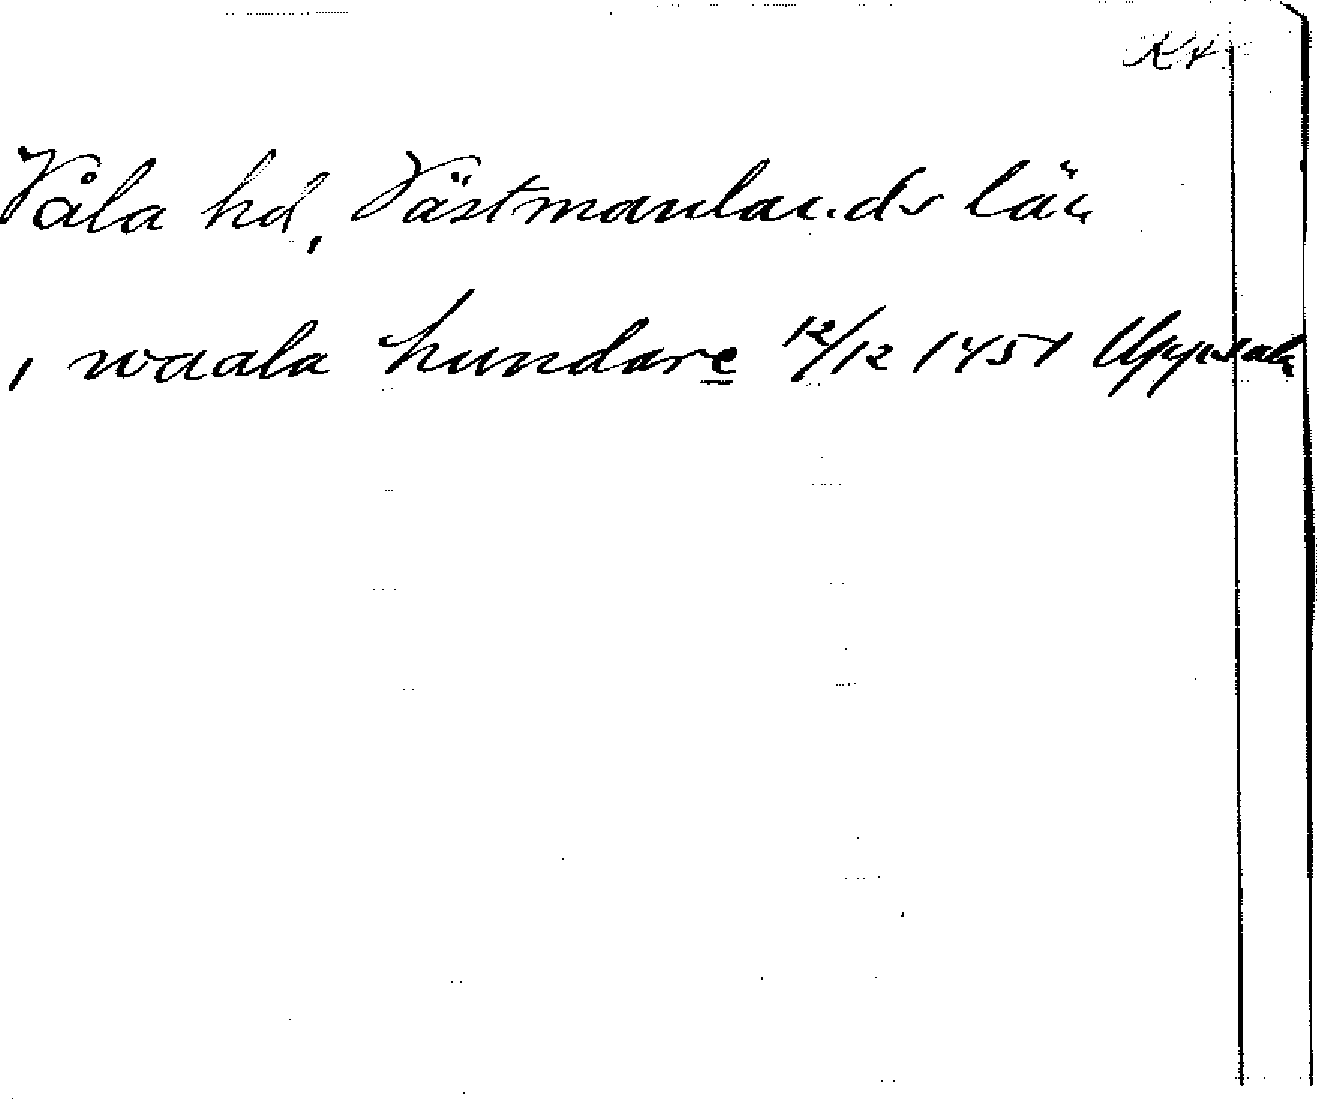 Våla hd, Västmanlands län
, waala hundare 12/12 1451 Uppsala